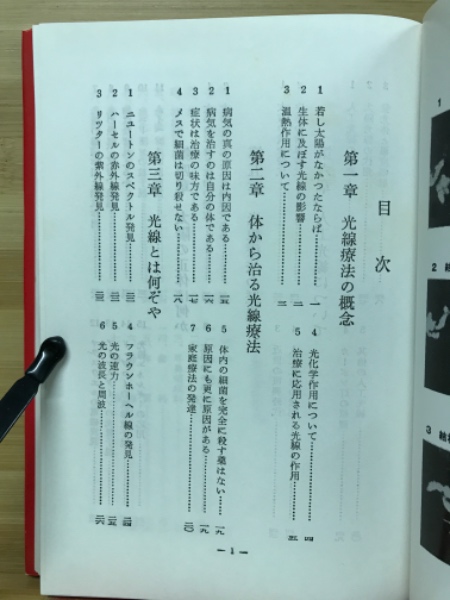 目次
第一章　光線療法の概念
1　若し太陽がなかつたならば……………一
2　生体に及ぼす光線の影響……………二
3　温熱作用について……………二
4　光化学作用について……………四
5　治療に応用される光線の作用……………五
第二章　体から治る光線療法
1　病気の真の原因は内因である……………一五
2　病気を治すのは自分の体である……………一六
3　症状は治療の味方である……………一七
4　メスで細菌は切り殺せない……………一八
5　体内の細菌を完全に殺す薬はない……………一九
6　原因にも更に原因がある……………一九
7　家庭療法の発達……………二〇
第三章　光線とは何ぞや
1　ニユートンのスペクトル発見……………二三
2　ハーセルの赤外線発見……………二三
3　リツターの紫外線発見……………二三
4　フラウンホーヘル線の発見……………二四
5　光の速力……………二五
6　光の波長と周波……………二六
— 1 —
1
2
3　結